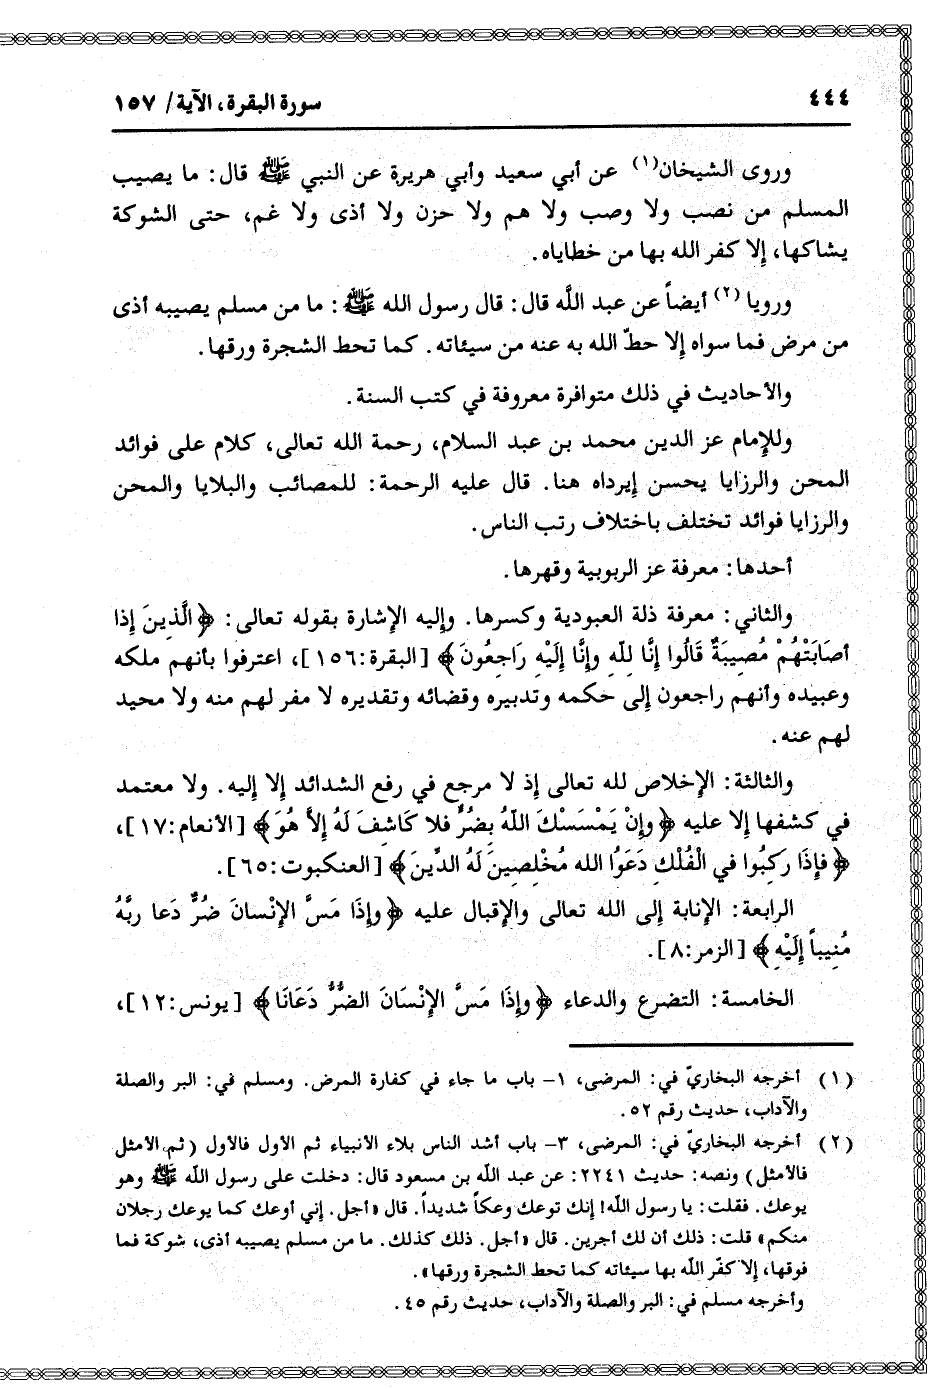 ٤٤٤
سورة البقرة، الآية/ ١٥٧
وروى الشيخان(١) عن أبي سعيد وأبي هريرة عن النبي ﷺ قال: ما يصيب
المسلم من نصب ولا وصب ولا هم ولا حزن ولا أذى ولا غم، حتى الشوكة
يشاكها، إلا كفر الله بها من خطاياه.
ورويا(٢) أيضاً عن عبد الله قال: قال رسول الله ﷺ: ما من مسلم يصيبه أذى
من مرض فما سواه إلا حطّ الله به عنه من سيئاته. كما تحط الشجرة ورقها.
والأحاديث في ذلك متوافرة معروفة في كتب السنة.
وللإمام عز الدين محمد بن عبد السلام، رحمة الله تعالى، كلام على فوائد
المحن والرزايا يحسن إيرداه هنا. قال عليه الرحمة: للمصائب والبلايا والمحن
والرزايا فوائد تختلف باختلاف رتب الناس.
أحدها: معرفة عز الربوبية وقهرها.
والثاني: معرفة ذلة العبودية وكسرها. وإليه الإشارة بقوله تعالى: ﴿الَّذِينَ إِذَا
أَصَابَتْهُمْ مُصِيبَةٌ قَالُوا إِنَّا لِلَّهِ وَإِنَّا إِلَيْهِ رَاجِعُونَ﴾ [البقرة:١٥٦]، اعترفوا بأنهم ملكه
وعبيده وأنهم راجعون إلى حكمه وتدبيره وقضائه وتقديره لا مفر لهم منه ولا محيد
لهم عنه.
والثالثة: الإخلاص لله تعالى إذ لا مرجع في رفع الشدائد إلا إليه. ولا معتمد
في كشفها إلا عليه ﴿وَإِنْ يَمْسَسْكَ اللَّهُ بِضُرٍّ فَلا كَاشِفَ لَهُ إِلاَّ هُوَ﴾ [الأنعام:١٧]،
﴿فَإِذَا رَكِبُوا فِي الْفُلْكِ دَعَوُا الله مُخْلِصِينَ لَهُ الدِّينَ﴾ [العنكبوت:٦٥].
الرابعة: الإنابة إلى الله تعالى والإقبال عليه ﴿وَإِذَا مَسَّ الإِنْسانَ ضُرٌّ دَعا ربَّهُ
مُنِيباً إِلَيْهِ﴾ [الزمر:٨].
الخامسة: التضرع والدعاء ﴿وَإِذَا مَسَّ الإِنْسَانَ الضُّرُّ دَعَانَا﴾ [يونس:١٢]،
(١) أخرجه البخاريّ في: المرضى، ١- باب ما جاء في كفارة المرض. ومسلم في: البر والصلة
والآداب، حديث رقم ٥٢.
(٢) أخرجه البخاريّ في: المرضى، ٣- باب أشد الناس بلاء الأنبياء ثم الأول فالأول (ثم الأمثل
فالأمثل) ونصه: حديث ٢٢٤١: عن عبد الله بن مسعود قال: دخلت على رسول الله ﷺ وهو
يوعك. فقلت: يا رسول الله! إنك توعك وعكاً شديداً. قال «أجل. إني أوعك كما يوعك رجلان
منكم» قلت: ذلك أن لك أجرين. قال «أجل. ذلك كذلك. ما من مسلم يصيبه أذى، شوكة فما
فوقها، إلا كفّر الله بها سيئاته كما تحط الشجرة ورقها».
وأخرجه مسلم في: البر والصلة والآداب، حديث رقم ٤٥.